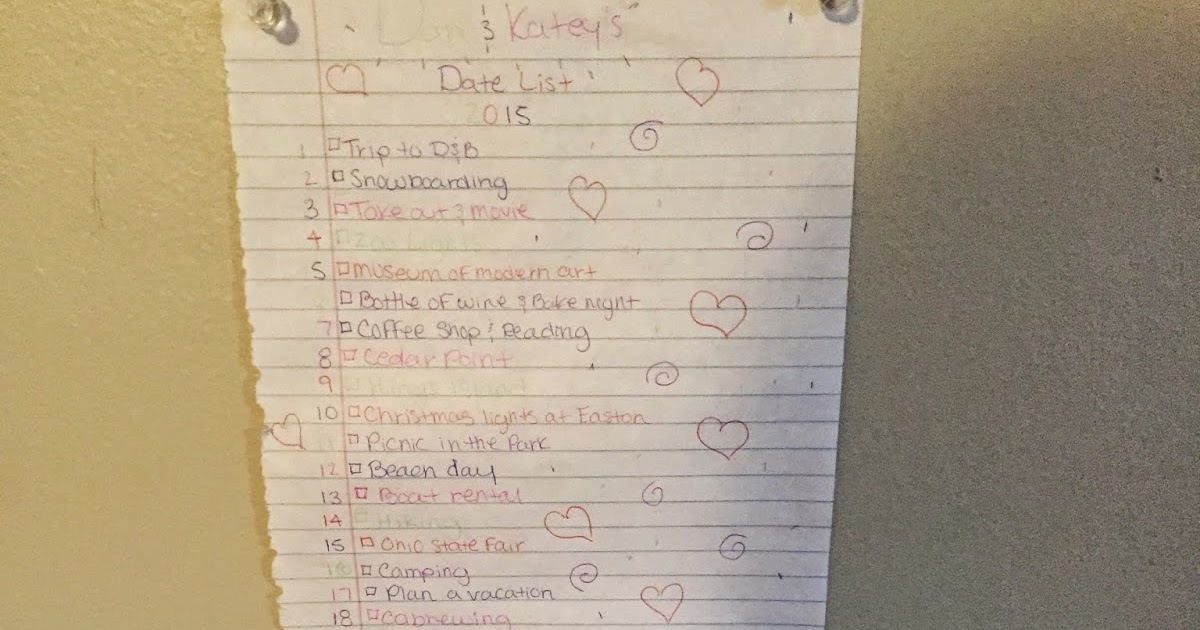 Dan & Katey's
Date List
2015
1 Trip to D&B
2 Snowboarding
3 Take out & movie
4 Zoo Lights
5 museum of modern art
Bottle of wine & Bake night
7 Coffee Shop & Reading
8 Cedar Point
9 Kings Island
10 Christmas lights at Easton
11 Picnic in the Park
12 Beach day
13 Boat rental
14 Hiking
15 Ohio State Fair
16 Camping
17 Plan a vacation
18 Cabrewing